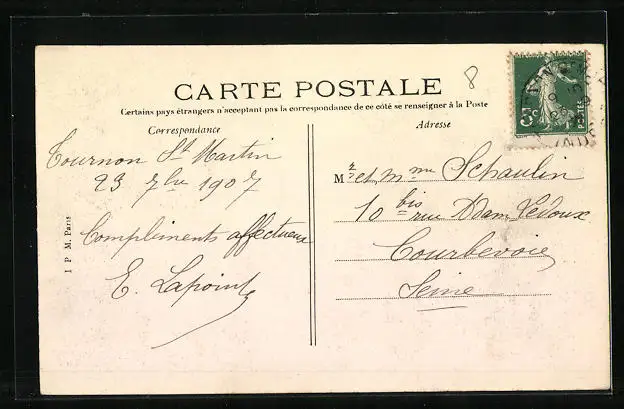 8
CARTE POSTALE
Certains pays étrangers n'acceptent pas la correspondance de ce côté se renseigner à la Poste
Correspondance
Adresse
Tournon St Martin
23 7bre 1907
Compliments affectueux
E. Lapointe
Mr et mme Schaulin
10 bis rue Adam Ledoux
Courbevoie
Seine
I P M. Paris
5c
POSTES